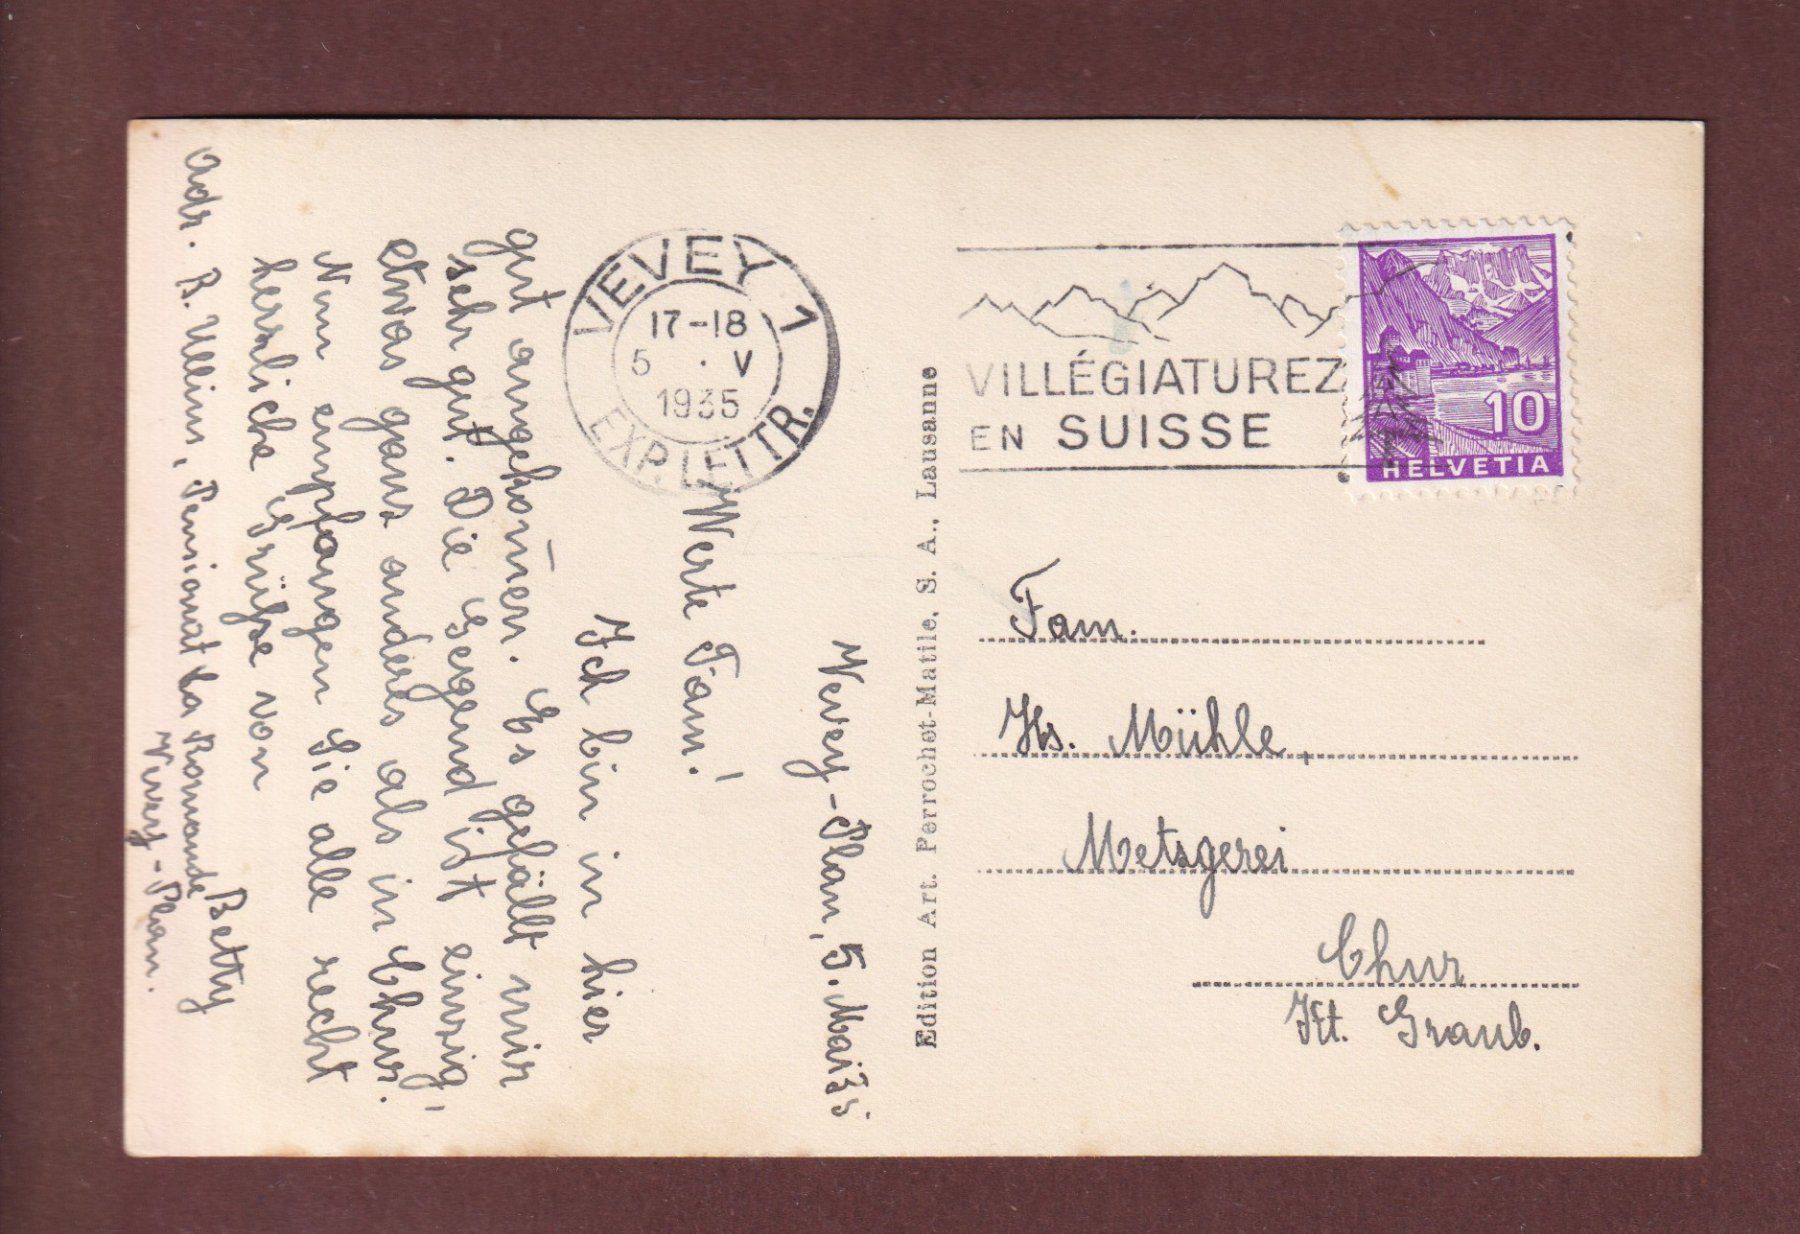 VEVEY 1
17-18
5 . V
1935
EXP. LETTR.
VILLÉGIATUREZ
EN SUISSE
10
HELVETIA
Vevey-Plan, 5. Mai 35
Werte Fam!
Ich bin in hier
gut angekom̄en. Es gefällt mir
sehr gut. Die Gegend ist einzig,
etwas ganz anderes als in Chur.
Nun empfangen Sie alle recht
herzliche Grüße von
Betty
Adr. B. Ullius, Pensionat La Romande
Vevey-Plan.
Edition Art. Perrochet-Matile, S. A., Lausanne
Fam.
Hs. Mühle,
Metzgerei
Chur
Kt. Graub.